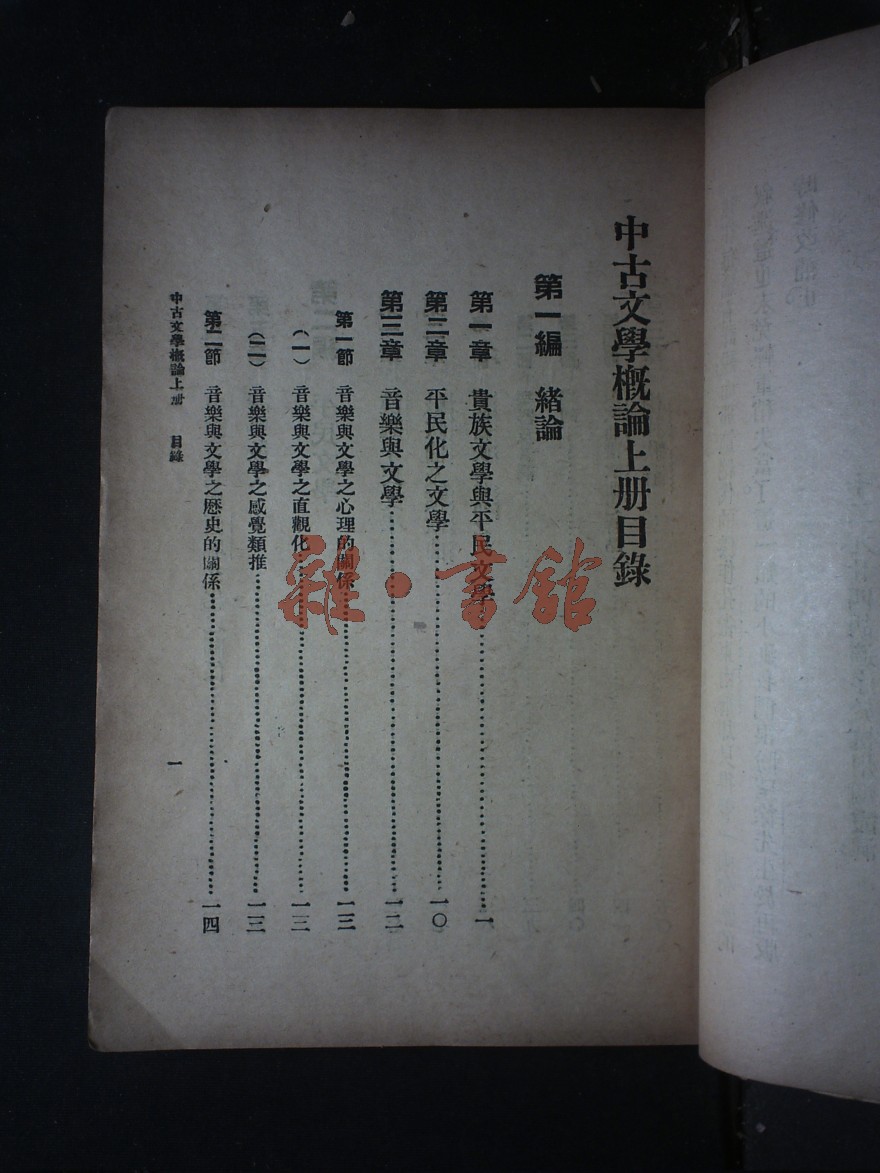 中古文學概論上册目錄
第一編 緒論
第一章 貴族文學與平民文學……一
第二章 平民化之文學……一〇
第三章 音樂與文學……一二
第一節 音樂與文學之心理的關係……一三
（一） 音樂與文學之直觀化……一三
（二） 音樂與文學之感覺類推……一三
第二節 音樂與文學之歷史的關係……一四
中古文學概論上册 目錄
一
雜·書館